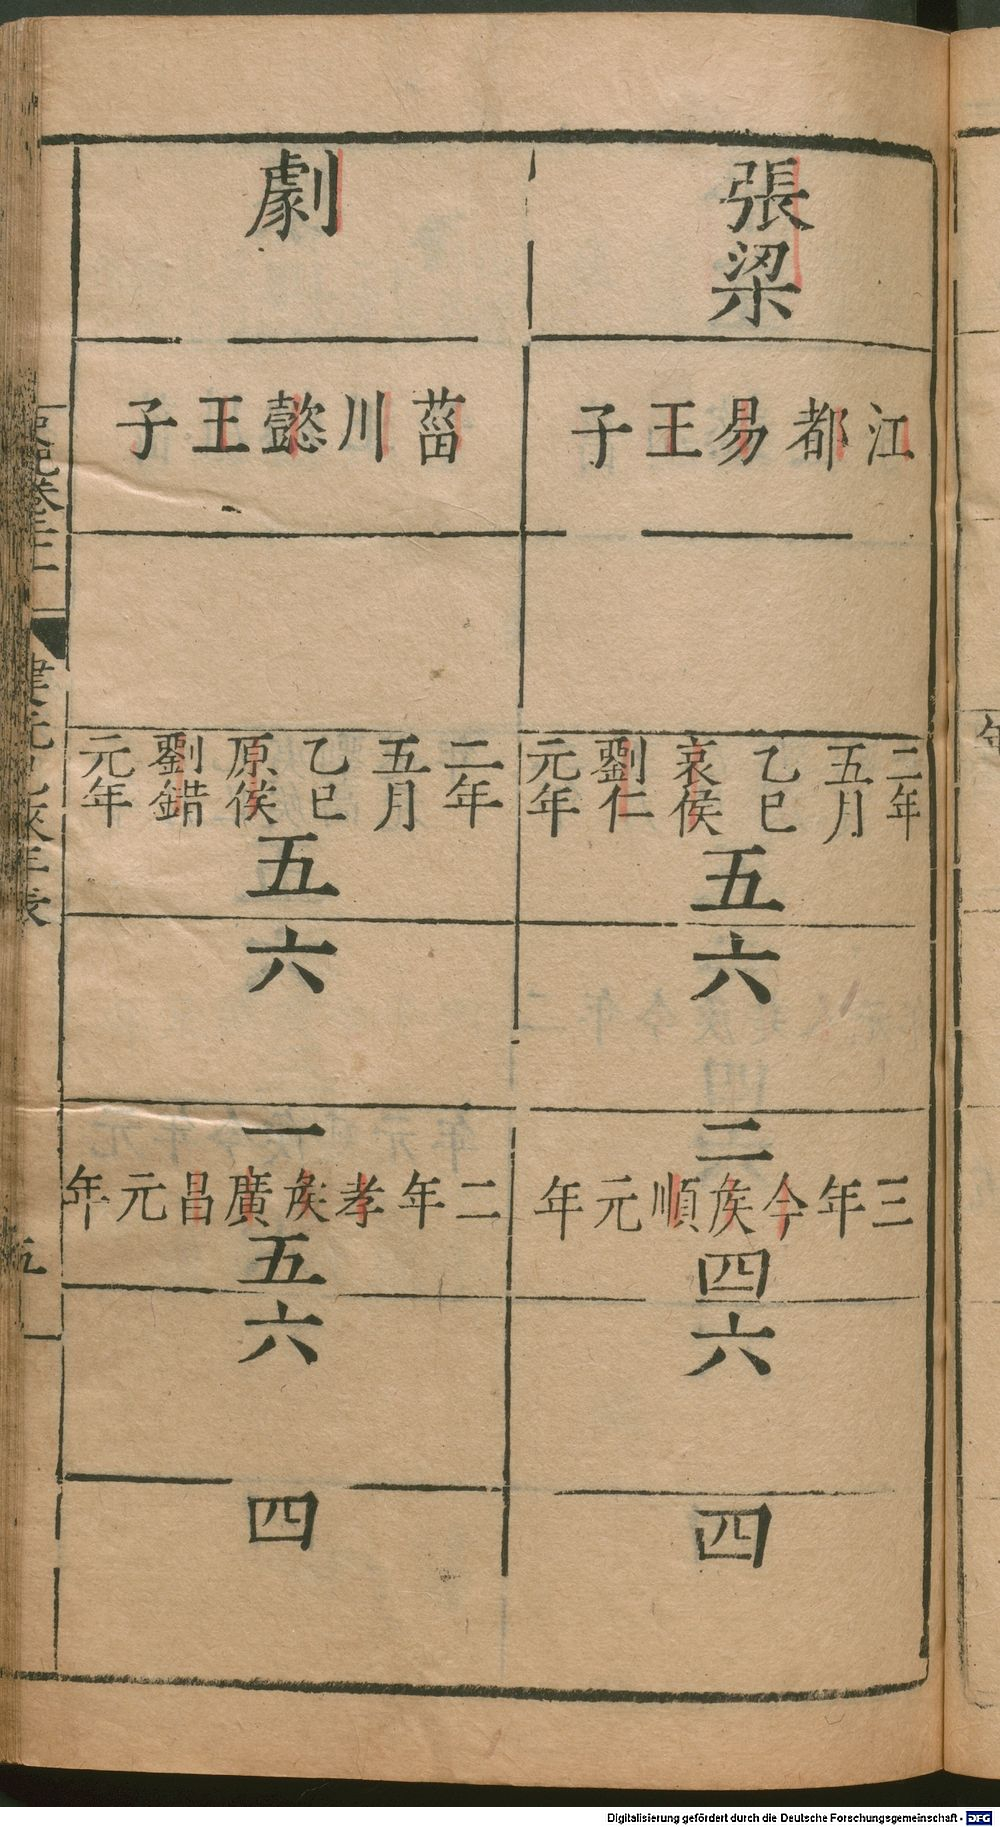 張梁
江都易王子
二年五月乙巳哀侯劉仁元年
五
六
二
三年今侯順元年
四
六
四
劇
菑川懿王子
二年五月乙巳原侯劉錯元年
五
六
一
二年孝侯廣昌元年
五
六
四
Digitalisierung gefördert durch die Deutsche Forschungsgemeinschaft - DFG